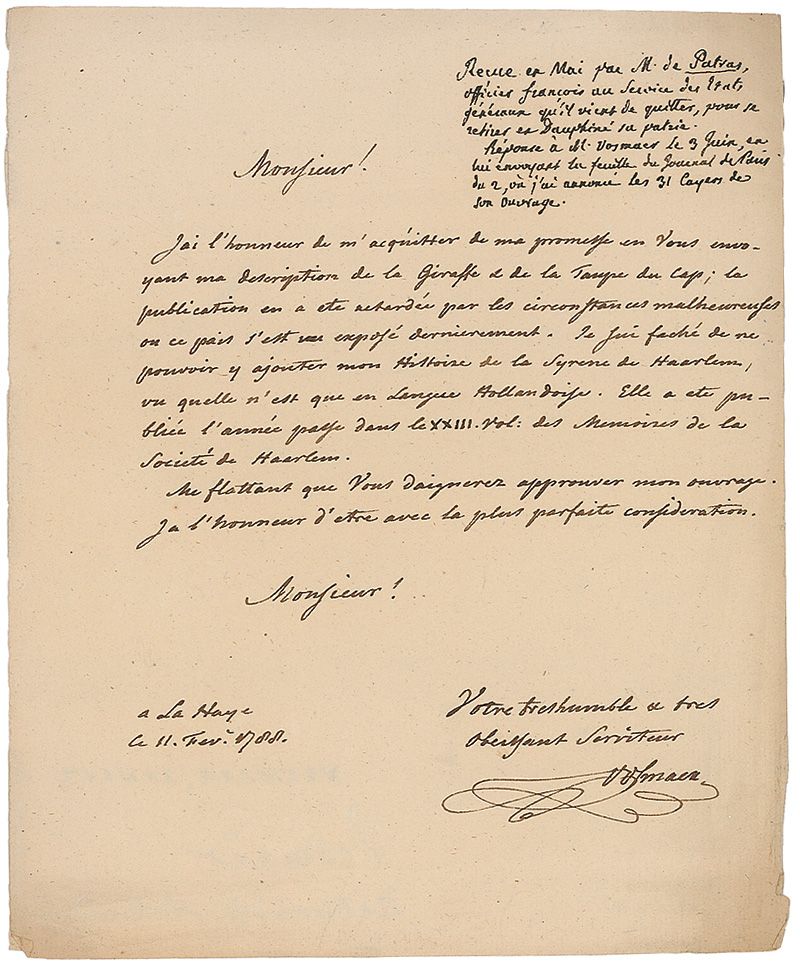 Recue en Mai par M. de Patras,
officier françois au Service des Etats
généraux qu'il vient de quitter, pour se
retirer en Dauphiné sa patrie.
Réponse à M. Vosmaer le 3 Juin, en
lui envoyant la feuille du Journal de Paris
du 2, où j'ai annoncé les 31 Cayers de
son Ouvrage.
Monsieur!
Jai l'honneur de m'acquitter de ma promesse en Vous envo-
yant ma description de la Giraffe & de la Taupe du Cap; la
publication en a eté retardée par les circonstances malheureuses
ou ce pais s'est exposé dernierement. Je suis faché de ne
pouvoir y ajouter mon Histoire de la Syrene de Haarlem,
vu quelle n'est que en Langue Hollandoise. Elle a ete pu-
bliée l'année passe dans le XXIII. Vol: des Memoires de la
Societé de Haarlem.
Me flattant que Vous daignerez approuver mon ouvrage.
Ja l'honneur d'etre avec la plus parfaite consideration.
Monsieur!
a La Haye
le 11. Fevr. 1788.
Votre treshumble & tres
Obeissant Serviteur
Vosmaer